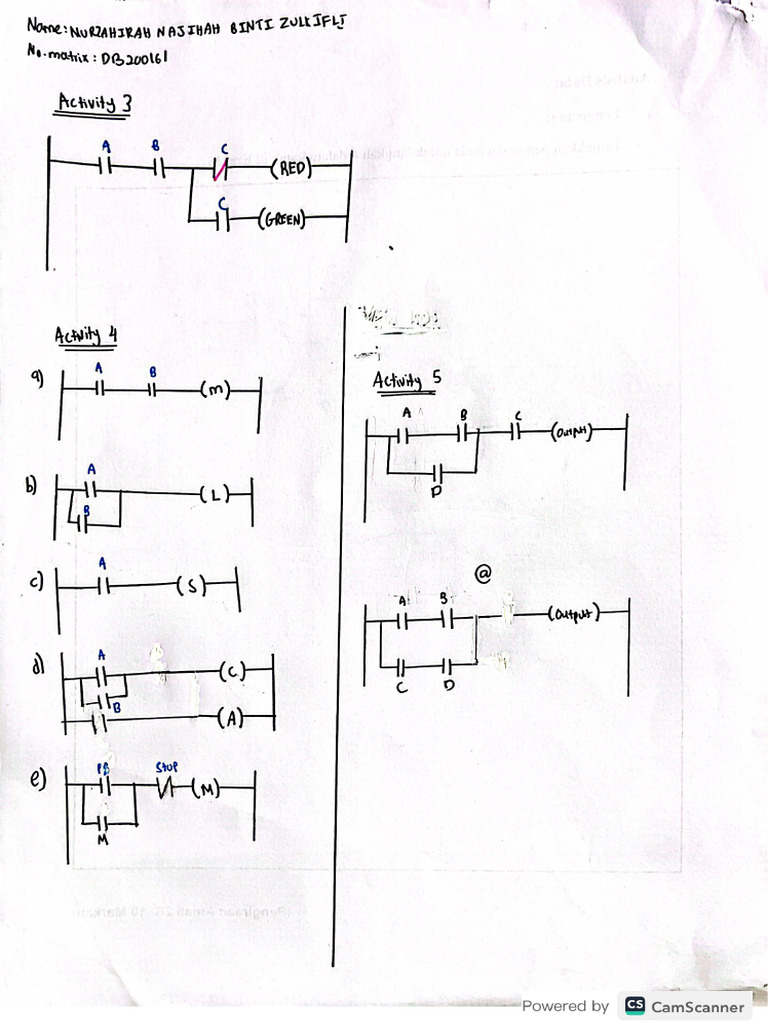 Name: NURZAHIRAH NAJIHAH BINTI ZULKIFLI
No. matrix: DB200161
Activity 3
A B C
(RED)
C
(GREEN)
Activity 4
a) A B (m)
b) A (L)
B
c) A (S)
d) A (C)
B
(A)
e) PB STOP (M)
M
Activity 5
A B C (Output)
D
@
A B (Output)
C D
Powered by CS CamScanner